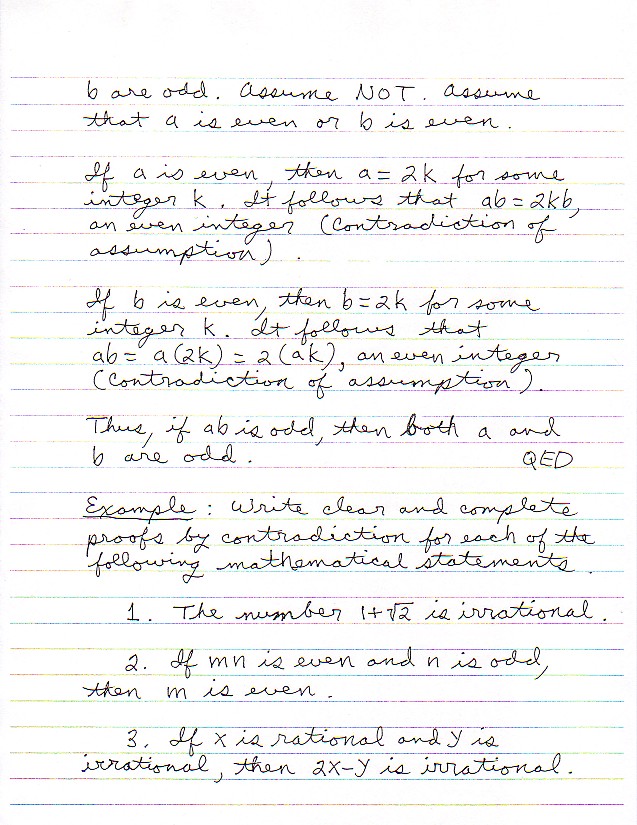 b are odd. Assume NOT. Assume
that a is even or b is even.
If a is even, then a = 2k for some
integer k. It follows that ab = 2kb,
an even integer (Contradiction of
assumption).
If b is even, then b = 2k for some
integer k. It follows that
ab = a(2k) = 2(ak), an even integer
(Contradiction of assumption).
Thus, if ab is odd, then both a and
b are odd. QED
Example: Write clear and complete
proofs by contradiction for each of the
following mathematical statements.
1. The number 1+√2 is irrational.
2. If mn is even and n is odd,
then m is even.
3. If x is rational and y is
irrational, then 2x-y is irrational.